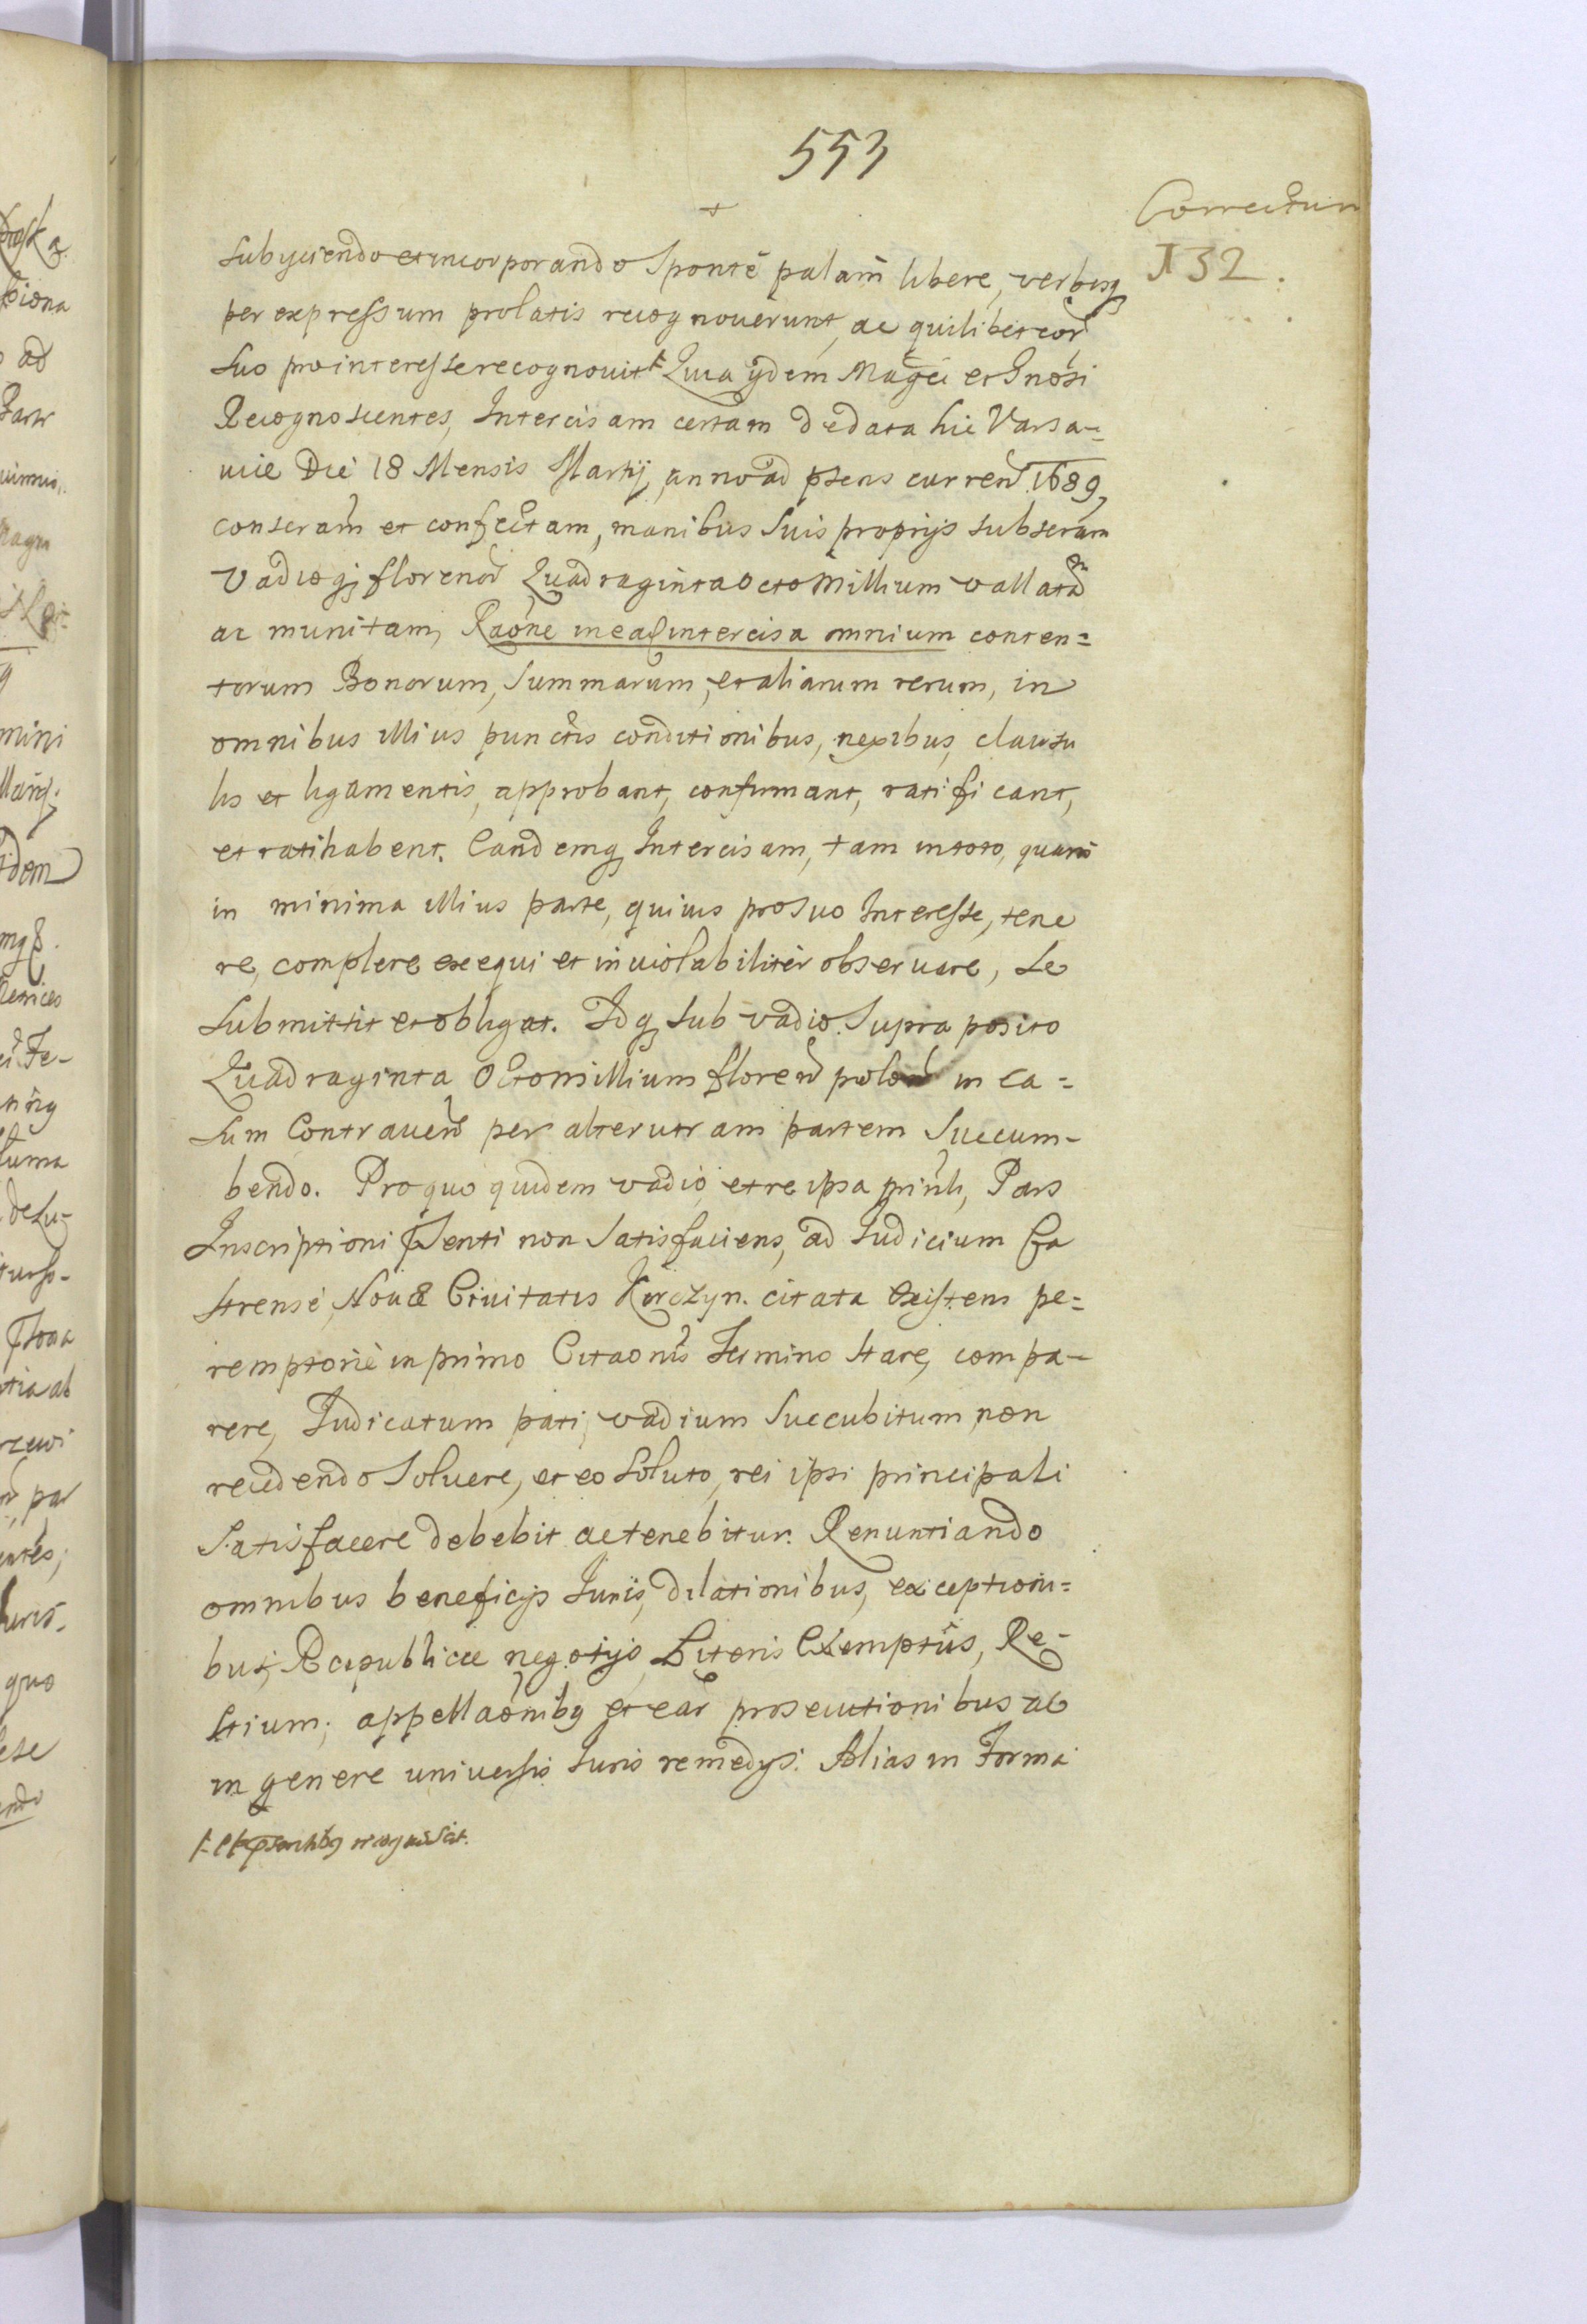 553
Correctum
J 32.
+
subyciendo et incorporando Sponte palam libere, verbisq
per expressum prolatis recognouerunt, ac quilibet eor
suo pro interesse recognouit Quia ydem Magci et Gnosi
Recognoscentes, Intercisam certam de data hic Varsa-
uie Die 18 Mensis Martij, anno ad psens curren 1689,
conseram et confectam, manibus suis proprys subseram
Vadioq florenor Quadraginta octo Millium vallata
ac munitam, Raone in ea Intercisa omnium conten=
torum Bonorum, Summarum, et aliarum rerum, in
omnibus illius punctis conditionibus, nexibus, clausu
lis et ligamentis, approbant, confirmant, ratificant,
et ratihabent. Eandemq Intercisam, tam in toto, quam
in minima illius parte, quiuis pro suo Interesse, tene
re, complere exequi et inuiolabiliter obseruare, se
submittit et obligat. Idq sub vadio Supra posito
Quadraginta Octo millium floren polon in ca=
sum Contrauen per alterutram partem Succum-
bendo. Pro quo quidem vadio, et re ipsa prinli, Pars
Inscriptioni psenti non Satisfaciens, ad Iudicium Ca
strense, Nouæ Ciuitatis Korczyn. citata Existens pe=
remptorie in primo Citaonis Termino stare, compa-
rere, Iudicatum pati, vadium Succubitum non
recedendo Soluere, et eo Soluto, rei ipsi principali
Satisfacere debebit ac tenebitur. Renuntiando
omnibus beneficijs Iuris, dilationibus, exceptioni=
bus, Reipublicæ negotijs Literis Exemptus, Re-
stium, appellaonibq et ear prosecutionibus ac
in genere universis Iuris remedys. Alias in Forma